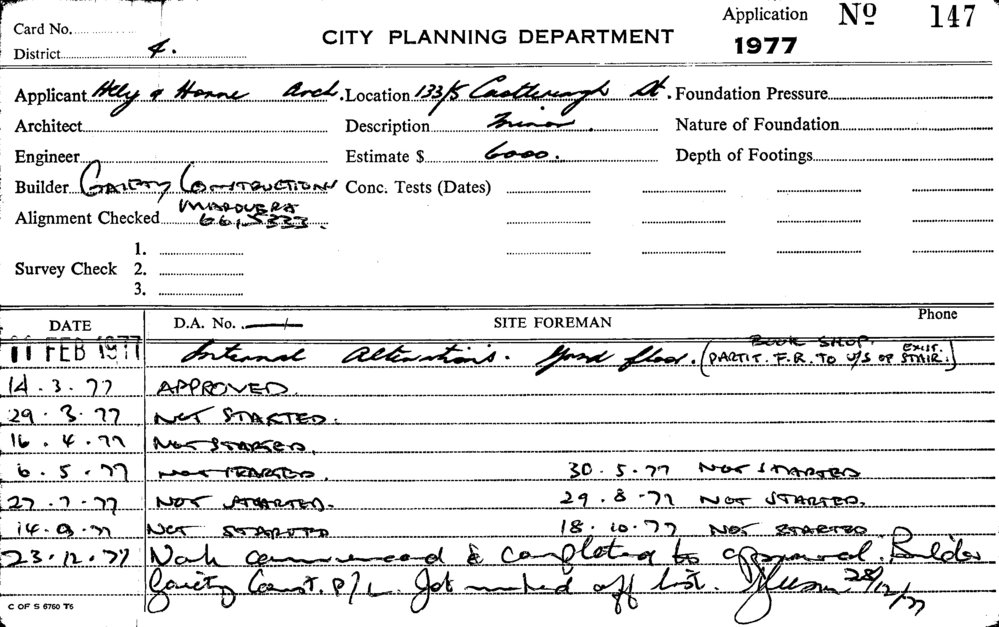 Card No. Application Nº 147
District 4. CITY PLANNING DEPARTMENT 1977
Applicant Hely & Horne Arch. Location 133/5 Castlereagh St. Foundation Pressure
Architect Description Minor. Nature of Foundation
Engineer Estimate $ 6000. Depth of Footings
Builder GAIETY CONSTRUCTIONS Conc. Tests (Dates)
MAROUBRA
Alignment Checked 661,5333.
1.
Survey Check 2.
3.
DATE D.A. No. SITE FOREMAN Phone
11 FEB 1977 Internal Alterations. Grnd floor. (BOOK SHOP. PARTIT. F.R. TO U/S OF EXIST. STAIR.)
14.3.77 APPROVED.
29.3.77 NOT STARTED.
16.4.77 NOT STARTED.
6.5.77 NOT STARTED. 30.5.77 NOT STARTED
27.7.77 NOT STARTED. 29.8.77 NOT STARTED.
14.9.77 NOT STARTED 18.10.77 NOT STARTED
23.12.77 Work commenced & completed to approval. Builder
Gaiety Const. P/L. Job marked off list. 28/12/77
C OF S 6760 T6